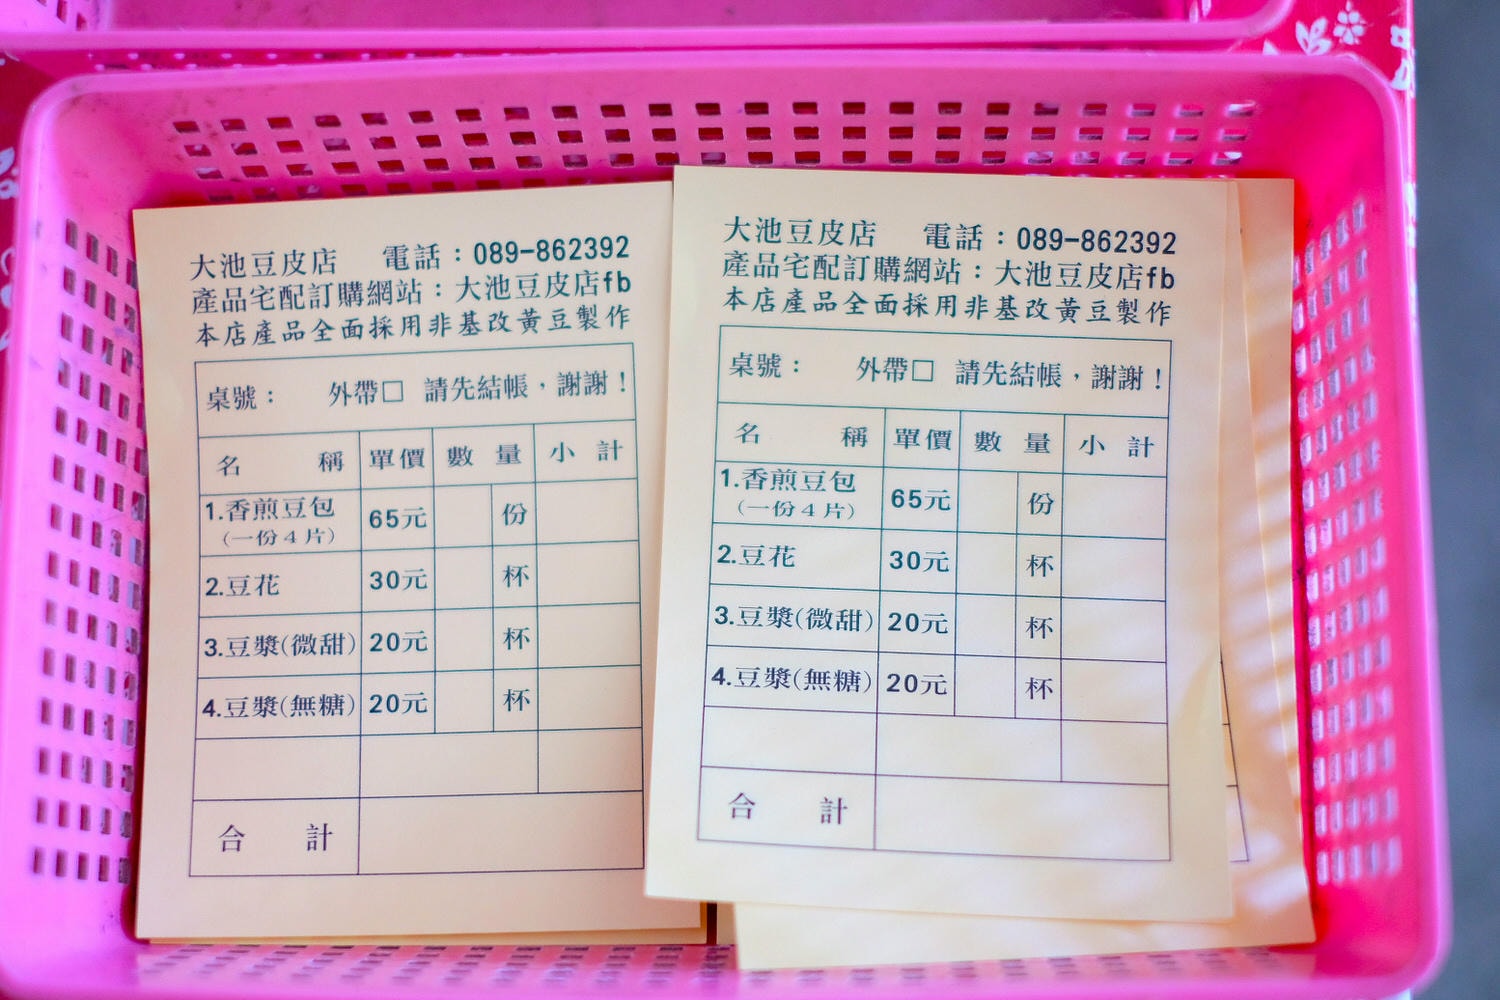 大池豆皮店 電話：089-862392
產品宅配訂購網站：大池豆皮店fb
本店產品全面採用非基改黃豆製作
桌號： 外帶□ 請先結帳，謝謝！
名稱 單價 數量 小計
1.香煎豆包 65元 份
(一份4片)
2.豆花 30元 杯
3.豆漿(微甜) 20元 杯
4.豆漿(無糖) 20元 杯
合計
大池豆皮店 電話：089-862392
產品宅配訂購網站：大池豆皮店fb
本店產品全面採用非基改黃豆製作
桌號： 外帶□ 請先結帳，謝謝！
名稱 單價 數量 小計
1.香煎豆包 65元 份
(一份4片)
2.豆花 30元 杯
3.豆漿(微甜) 20元 杯
4.豆漿(無糖) 20元 杯
合計